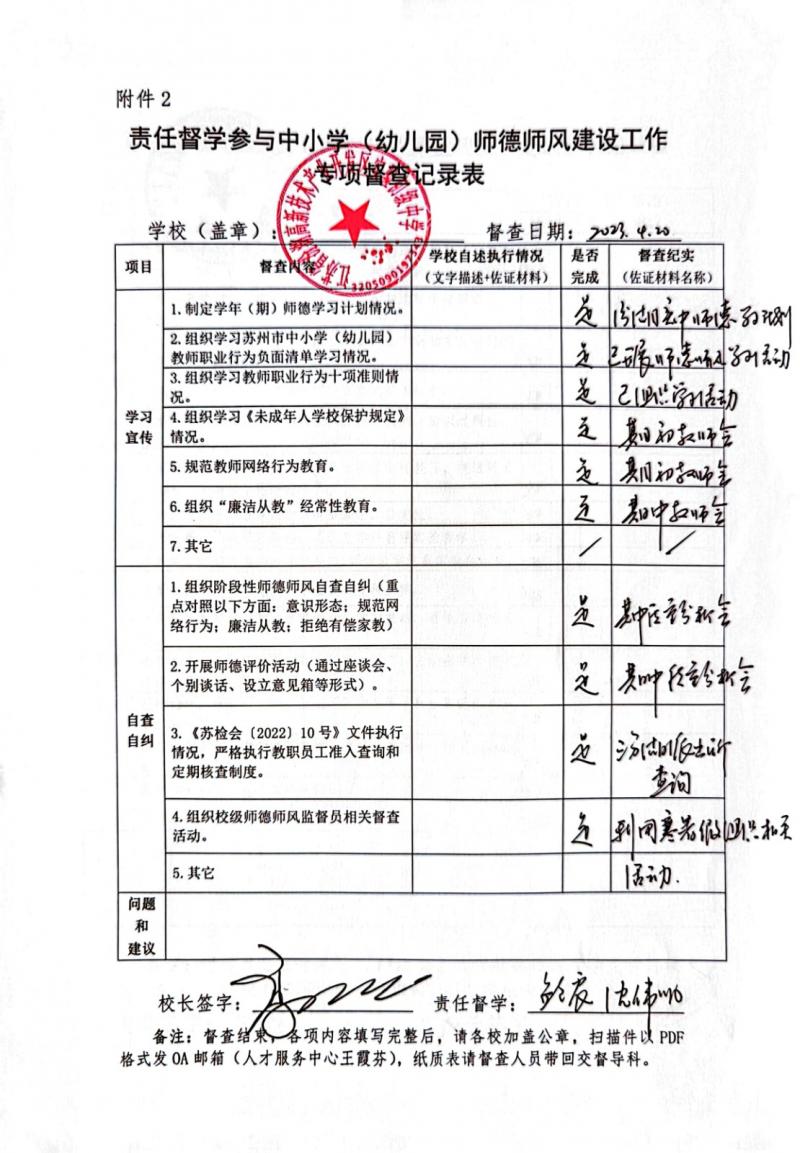 附件 2
责任督学参与中小学（幼儿园）师德师风建设工作
专项督查记录表
学校（盖章）：
督查日期：2023.4.20
项目
督查内容
学校自述执行情况
（文字描述+佐证材料）
是否
完成
督查纪实
（佐证材料名称）
学习
宣传
1.制定学年（期）师德学习计划情况。
是
2.组织学习苏州市中小学（幼儿园）
教师职业行为负面清单学习情况。
是 已开展师德师风学习活动
3.组织学习教师职业行为十项准则情
况。
是 已组织学习活动
4.组织学习《未成年人学校保护规定》
情况。
是 期初教师会
5.规范教师网络行为教育。
是 期初教师会
6.组织“廉洁从教”经常性教育。
是 期中教师会
7.其它
/ /
自查
自纠
1.组织阶段性师德师风自查自纠（重
点对照以下方面：意识形态；规范网
络行为；廉洁从教；拒绝有偿家教）
是 期中质量分析会
2.开展师德评价活动（通过座谈会、
个别谈话、设立意见箱等形式）。
是 期中质量分析会
3.《苏检会〔2022〕10 号》文件执行
情况，严格执行教职员工准入查询和
定期核查制度。
是 派出所
查询
4.组织校级师德师风监督员相关督查
活动。
是 利用寒暑假组织相关
活动.
5.其它
问题
和
建议
校长签字：
责任督学：沈伟
备注：督查结束，各项内容填写完整后，请各校加盖公章，扫描件以 PDF
格式发 OA 邮箱（人才服务中心王霞芬），纸质表请督查人员带回交督导科。
3205090192343